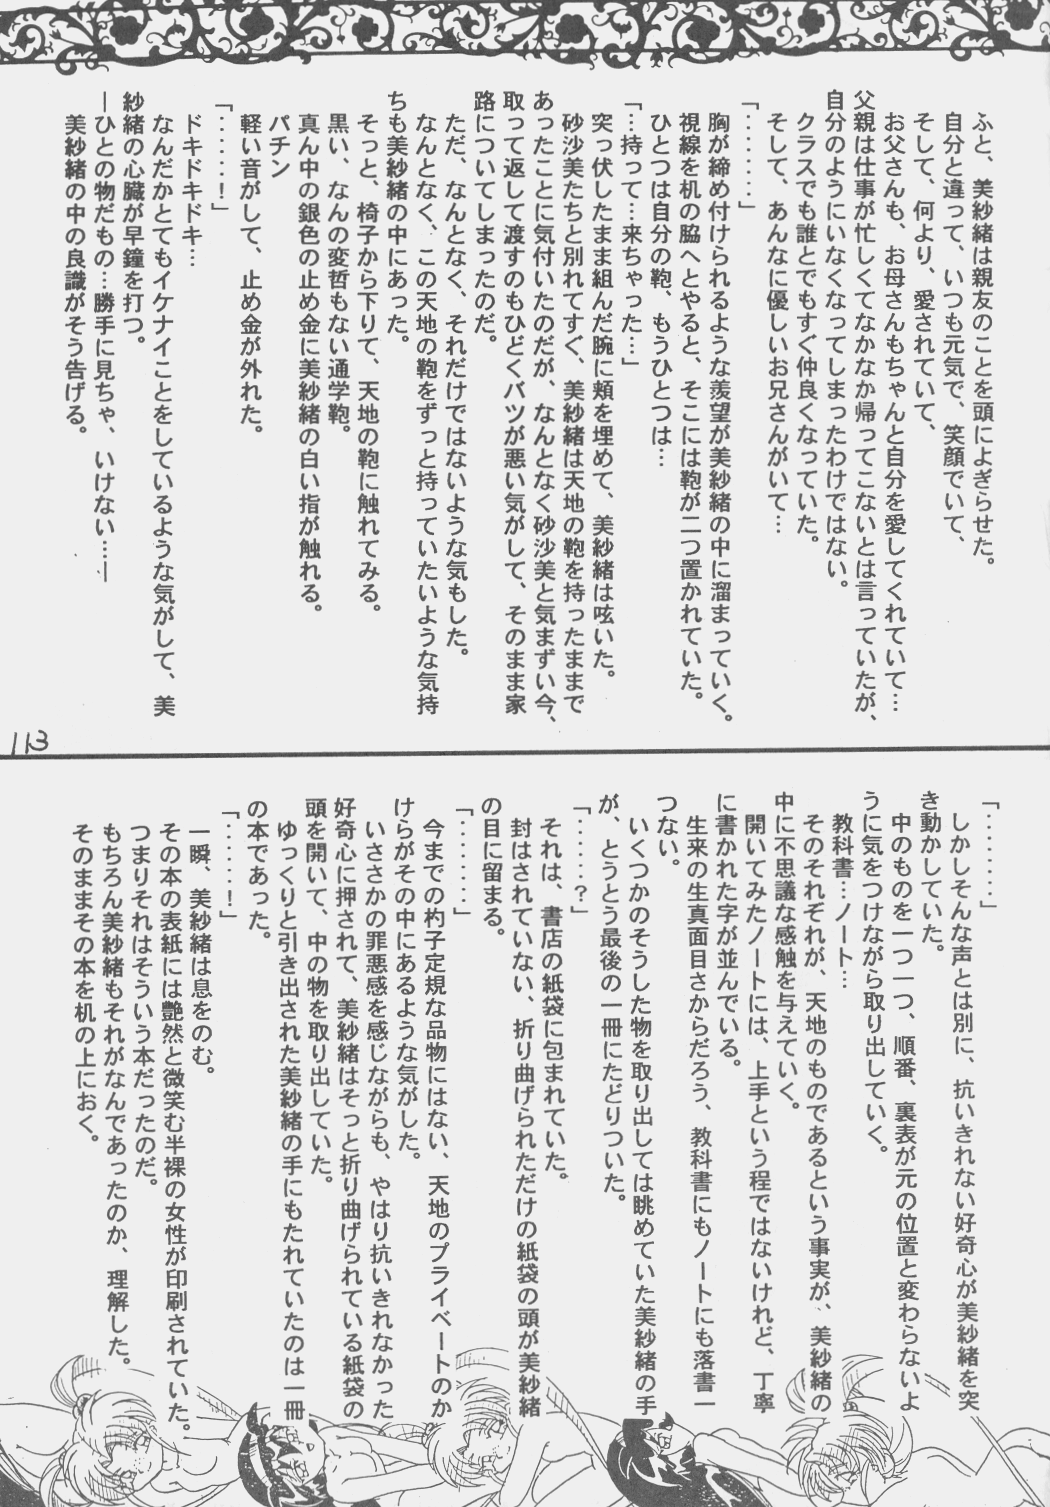 ふと、美紗緒は親友のことを頭によぎらせた。
自分と違って、いつも元気で、笑顔でいて、
そして、何より、愛されていて、
お父さんも、お母さんもちゃんと自分を愛してくれていて…
父親は仕事が忙しくてなかなか帰ってこないとは言っていたが、
自分のようにいなくなってしまったわけではない。
クラスでも誰とでもすぐ仲良くなっていた。
そして、あんなに優しいお兄さんがいて…
「・・・・・・」
胸が締め付けられるような羨望が美紗緒の中に溜まっていく。
視線を机の脇へとやると、そこには鞄が二つ置かれていた。
ひとつは自分の鞄、もうひとつは…
「…持って…来ちゃった…」
突っ伏したまま組んだ腕に頬を埋めて、美紗緒は呟いた。
砂沙美たちと別れてすぐ、美紗緒は天地の鞄を持ったままで
あったことに気付いたのだが、なんとなく砂沙美と気まずい今、
取って返して渡すのもひどくバツが悪い気がして、そのまま家
路についてしまったのだ。
ただ、なんとなく、それだけではないような気もした。
なんとなく、この天地の鞄をずっと持っていたいような気持
ちも美紗緒の中にあった。
そっと、椅子から下りて、天地の鞄に触れてみる。
黒い、なんの変哲もない通学鞄。
真ん中の銀色の止め金に美紗緒の白い指が触れる。
パチン
軽い音がして、止め金が外れた。
「・・・・・！」
ドキドキドキ…
なんだかとてもイケナイことをしているような気がして、美
紗緒の心臓が早鐘を打つ。
―ひとの物だもの…勝手に見ちゃ、いけない…―
美紗緒の中の良識がそう告げる。
113
「・・・・・・」
しかしそんな声とは別に、抗いきれない好奇心が美紗緒を突
き動かしていた。
中のものを一つ一つ、順番、裏表が元の位置と変わらないよ
うに気をつけながら取り出していく。
教科書…ノート…
そのそれぞれが、天地のものであるという事実が、美紗緒の
中に不思議な感触を与えていく。
開いてみたノートには、上手という程ではないけれど、丁寧
に書かれた字が並んでいる。
生来の生真面目さからだろう、教科書にもノートにも落書一
つない。
いくつかのそうした物を取り出しては眺めていた美紗緒の手
が、とうとう最後の一冊にたどりついた。
「・・・・・？」
それは、書店の紙袋に包まれていた。
封はされていない、折り曲げられただけの紙袋の頭が美紗緒
の目に留まる。
「・・・・・・」
今までの杓子定規な品物にはない、天地のプライベートのか
けらがその中にあるような気がした。
いささかの罪悪感を感じながらも、やはり抗いきれなかった
好奇心に押されて、美紗緒はそっと折り曲げられている紙袋の
頭を開いて、中の物を取り出していた。
ゆっくりと引き出された美紗緒の手にもたれていたのは一冊
の本であった。
「・・・・・！」
一瞬、美紗緒は息をのむ。
その本の表紙には艶然と微笑む半裸の女性が印刷されていた。
つまりそれはそういう本だったのだ。
もちろん美紗緒もそれがなんであったのか、理解した。
そのままその本を机の上におく。